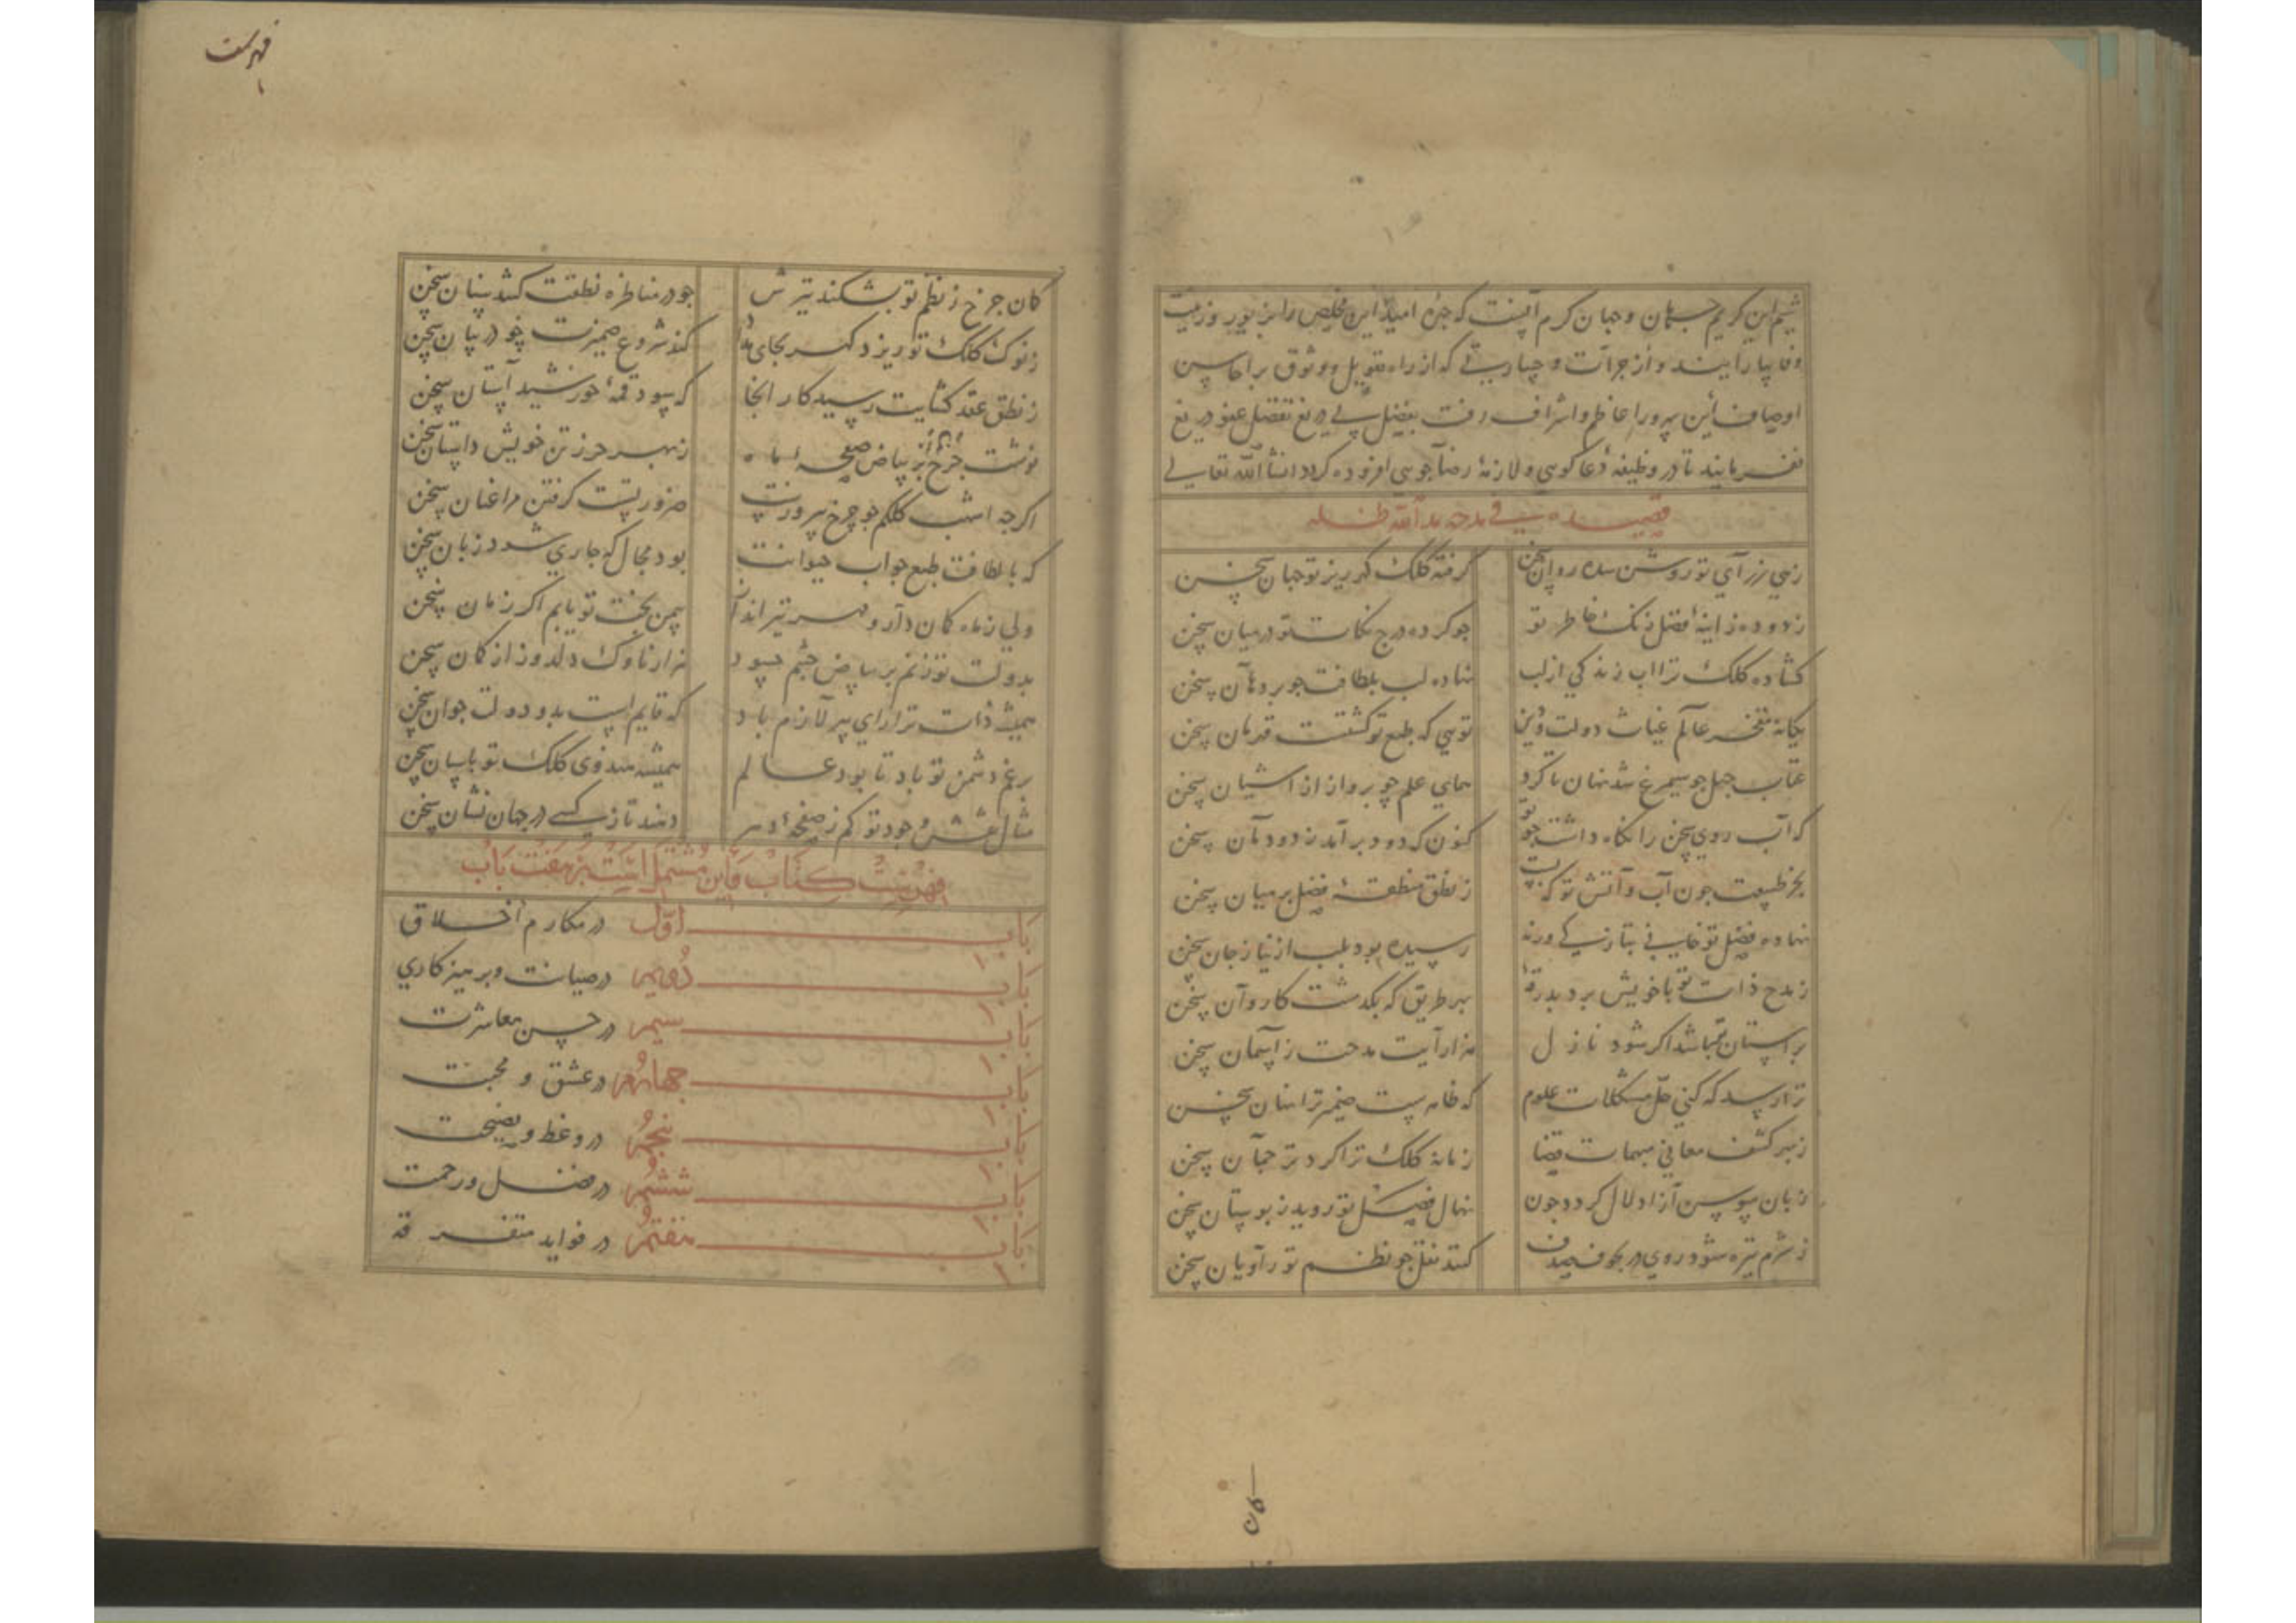 شیم این کریم جهان و جهان کرم آنست که چهره امید این مخلص را بزیور و زینت
وفا بیارایند و از جرأت و جسارتی که از راه تعویل و وثوق بر محاسن
اوصاف این سرور اعاظم و اشراف رفت بفضل بی دریغ تفضل عفو دریغ
نفرمایند تا در وظیفهٔ دعا کوسی و لازمهٔ رضا جوسی افزوده کردد انشآ الله تعالی
قصیده فی مدحه مد الله ظله
زهی زرای تو روشن شده روان سخن
کرفته کلک کهرریز تو جهان سخن
زدوده ز اینهٔ فضل زنک خاطر تو
جو کرده درج نکات تو در میان سخن
کشاده کلک ترا اب زندکی از لب
نهاده لب بلطافت جو بر دهان سخن
یکانه مفخر عالم غیاث دولت و دین
توسی که طبع تو کشتست قهرمان سخن
عقاب جهل جو سیمرغ شد نهان تا کرد
همای علم جو پرواز از اشیان سخن
که آب روی سخن را نکاه داشت جو تو
کنون که دود برآمد ز دودمان سخن
بجز طبیعت جون آب و آتش تو که بست
ز نطق منطقهٔ فضل بر میان سخن
نهاده فضل تو خاسی بتازکی ورنه
رسیده بود بلب از نیاز جان سخن
ز مدح ذات تو با خویش برد بدرقهٔ
بهر طریق که بکذشت کاروان سخن
بر استان تو باشد اکر شود نازل
هزار آیت مدحت ز آسمان سخن
ترا رسد که کنی حل مشکلات علوم
که خامه پست ضمیر ترا بنان سخن
ز بهر کشف معانی مبهمات قضا
زمانه کلک ترا کرد ترجمان سخن
زبان سوسن آزاد لال کردد جون
نهال فضل تو روید ز بوستان سخن
ز شرم تیره شود روی در بجوف صدف
کنند نقل جو نظم تو راویان سخن
کان
فهرست
کان جرخ ز نظم تو بشکند تیرش
جو در مناظره نطقت کشد سنان سخن
ز نوک کلک تو ریزد کهر بجای مداد
کند شروع ضمیرت جو در بیان سخن
ز نطق عقد کشایت رسید کار انجا
که سود قمهٔ خورشید آستان سخن
نوشت جرخ بر بیاض صفحهٔ ماه
ز بهر حرز تن خویش داستان سخن
اکرجه اشهب کلکم جو چرخ پرورتست
ضرورتست کرفتن مرا عنان سخن
که با لطافت طبع جواب حیوانت
بود محال که جاری شود زبان سخن
ولی ز ماه کمان دارد و مهر تیر انداز
بیمن بخت تو یابم اکر زمان سخن
بدولت تو زنم بر بیاض جشم حسود
هزار ناوک دلدوز از کمان سخن
همیشه ذات ترا رای پیر لازم باد
که قایم است بدو دولت جوان سخن
برغم دشمن تو باد تا بود عالم
همیشه هندوی کلک تو پاسبان سخن
مثال نقش وجود تو کم ز صفحهٔ دهر
دهند تازه کسی در جهان نشان سخن
فهرست کتاب و این مشتمل است بر هفت باب
باب اوّل در مکارم اخلاق
باب دویم در صیانت و برهیزکاری
باب سیم در حسن معاشرت
باب جهارم در عشق و محبت
باب پنجم در وعظ و نصیحت
باب ششم در فضل و رحمت
باب هفتم در فواید متفرقه